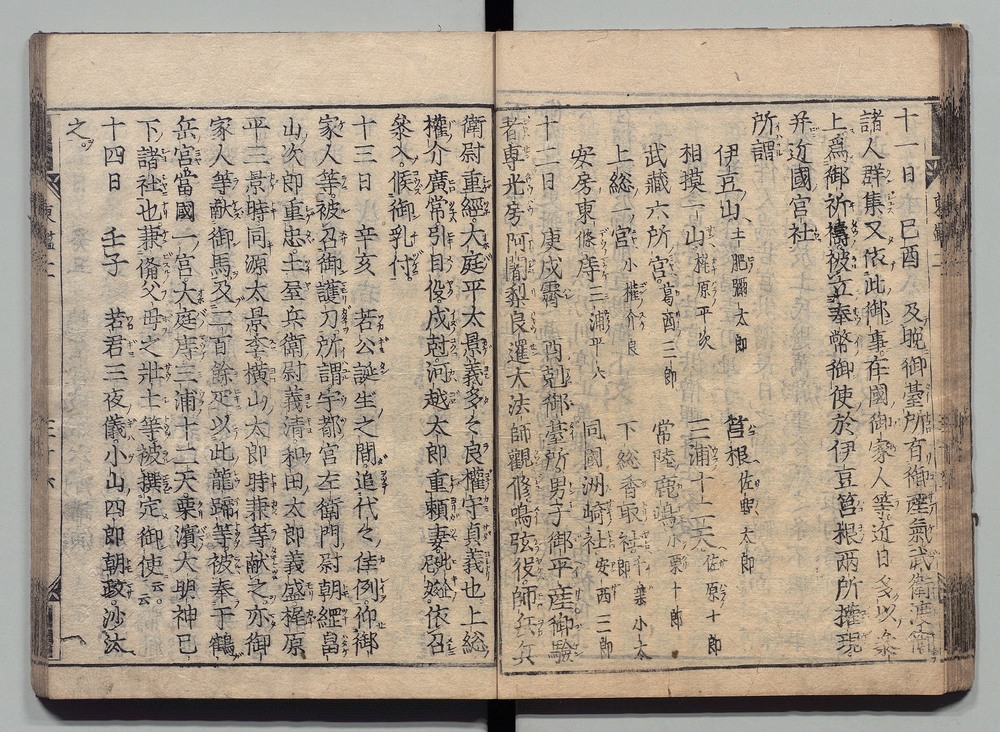 十一日 己酉 及晩御臺所有御産氣武衛渡御
諸人群集又依此御事在國御家人等近日多以參
上為御祈禱被立奉幣御使於伊豆筥根兩所權現
并近國宮社
所謂
伊豆山 土肥彌太郎 筥根 佐野太郎
相摸一山 梶原平次 三浦十二天 佐原十郎
武藏六所宮 葛西三郎 常陸鹿嶋 小栗十郎
上総一宮 小權介良 下総香取社 千葉小太郎
安房東條庤 三浦平六 同國洲崎社 安西三郎
十二日 庚戌霽 酉剋御臺所男子御平産御驗
者專光房阿闍梨良暹大法師觀修鳴弦役師岳兵
衛尉重經大庭平太景義多々良權守貞義也上総
權介廣常引目役戌剋河越太郎重頼妻 依召
參入候御乳付
十三日 辛亥 若公誕生之間追代々佳例仰御
家人等被召御護刀所謂宇都宮左衛門尉朝綱畠
山次郎重忠土屋兵衛尉義清和田太郎義盛梶原
平三景時同源太景季横山太郎時兼等献之亦御
家人等献御馬及二百餘疋以此龍蹄等被奉于鶴
岳宮當國一宮大庭庤三浦十二天栗濱大明神已
下諸社也兼備父母之壯士等被撰定御使云云
十四日 壬子 若君三夜儀小山四郎朝政沙汰
之
東鑑二